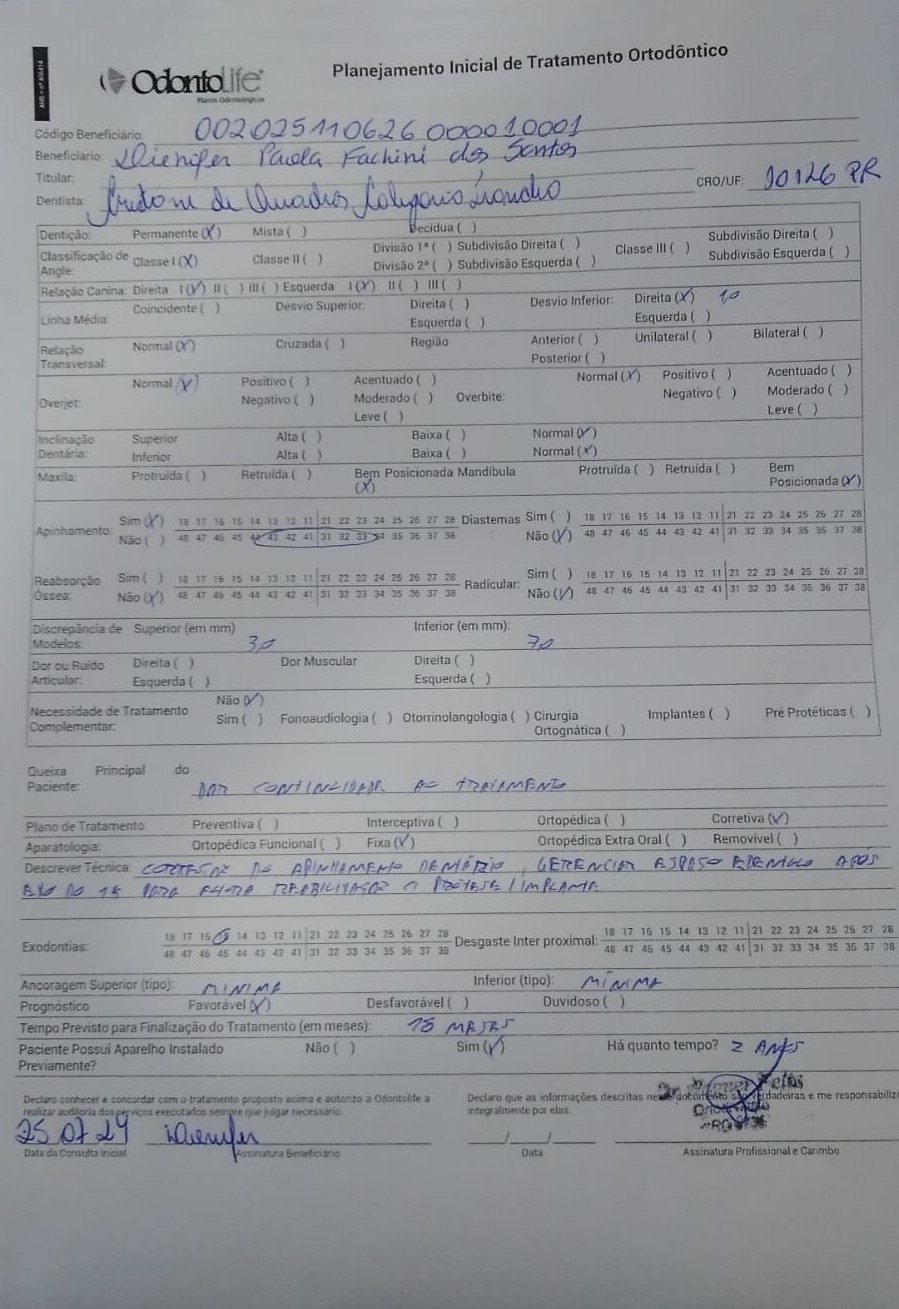 OdontoLife
Planos Odontológicos
Planejamento Inicial de Tratamento Ortodôntico
Código Beneficiário: 002025110626000010001
Beneficiário: Dienifer Paola Fachini dos Santos
Titular:
Dentista: de Quadros CRO/UF: PR
Dentição: Permanente (X) Mista ( ) Decídua ( )
Classificação de Angle: Classe I (X) Classe II ( ) Divisão 1ª ( ) Subdivisão Direita ( ) Classe III ( ) Subdivisão Direita ( )
Divisão 2ª ( ) Subdivisão Esquerda ( ) Subdivisão Esquerda ( )
Relação Canina: Direita I (X) II ( ) III ( ) Esquerda I (X) II ( ) III ( )
Linha Média: Coincidente ( ) Desvio Superior: Direita ( ) Desvio Inferior: Direita (X) 1,0
Esquerda ( ) Esquerda ( )
Relação Transversal: Normal (X) Cruzada ( ) Região Anterior ( ) Unilateral ( ) Bilateral ( )
Posterior ( )
Overjet: Normal (X) Positivo ( ) Acentuado ( ) Overbite: Normal (X) Positivo ( ) Acentuado ( )
Negativo ( ) Moderado ( ) Negativo ( ) Moderado ( )
Leve ( ) Leve ( )
Inclinação Dentária: Superior Alta ( ) Baixa ( ) Normal (X)
Inferior Alta ( ) Baixa ( ) Normal (X)
Maxila: Protruída ( ) Retruída ( ) Bem Posicionada (X) Mandíbula Protruída ( ) Retruída ( ) Bem Posicionada (X)
Apinhamento: Sim (X) 18 17 16 15 14 13 12 11 21 22 23 24 25 26 27 28 Diastemas: Sim ( ) 18 17 16 15 14 13 12 11 21 22 23 24 25 26 27 28
Não ( ) 48 47 46 45 44 43 42 41 31 32 33 34 35 36 37 38 Não (X) 48 47 46 45 44 43 42 41 31 32 33 34 35 36 37 38
Reabsorção Óssea: Sim ( ) 18 17 16 15 14 13 12 11 21 22 23 24 25 26 27 28 Radicular: Sim ( ) 18 17 16 15 14 13 12 11 21 22 23 24 25 26 27 28
Não (X) 48 47 46 45 44 43 42 41 31 32 33 34 35 36 37 38 Não (X) 48 47 46 45 44 43 42 41 31 32 33 34 35 36 37 38
Discrepância de Modelos: Superior (em mm) 3,0 Inferior (em mm): 7,0
Dor ou Ruído Articular: Direita ( ) Dor Muscular Direita ( )
Esquerda ( ) Esquerda ( )
Necessidade de Tratamento Complementar: Não (X)
Sim ( ) Fonoaudiologia ( ) Otorrinolangologia ( ) Cirurgia Ortognática ( ) Implantes ( ) Pré Protéticas ( )
Queixa Principal do Paciente: DAR CONTINUIDADE AO TRATAMENTO
Plano de Tratamento: Preventiva ( ) Interceptiva ( ) Ortopédica ( ) Corretiva (X)
Aparatologia: Ortopédica Funcional ( ) Fixa (X) Ortopédica Extra Oral ( ) Removível ( )
Descrever Técnica: CORREÇÃO DO APINHAMENTO DENTÁRIO, GERENCIAR ESPAÇO APÓS
EXO DO 15 PARA FUTURA REABILITAÇÃO C/ PRÓTESE/IMPLANTE
Exodontias: 18 17 16 15 14 13 12 11 21 22 23 24 25 26 27 28 Desgaste Inter proximal: 18 17 16 15 14 13 12 11 21 22 23 24 25 26 27 28
48 47 46 45 44 43 42 41 31 32 33 34 35 36 37 38 48 47 46 45 44 43 42 41 31 32 33 34 35 36 37 38
Ancoragem Superior (tipo): MINIMA Inferior (tipo): MÍNIMA
Prognóstico Favorável (X) Desfavorável ( ) Duvidoso ( )
Tempo Previsto para Finalização do Tratamento (em meses): MESES
Paciente Possui Aparelho Instalado Previamente? Não ( ) Sim (X) Há quanto tempo? 2 ANOS
Declaro conhecer e concordar com o tratamento proposto acima e autorizo a Odontolife a
realizar auditoria dos serviços executados sempre que julgar necessário.
Declaro que as informações descritas neste documento são verdadeiras e me responsabilizo
integralmente por elas.
25 07 24 Dienifer __/__/__
Data da Consulta Inicial Assinatura Beneficiário Data Assinatura Profissional e Carimbo